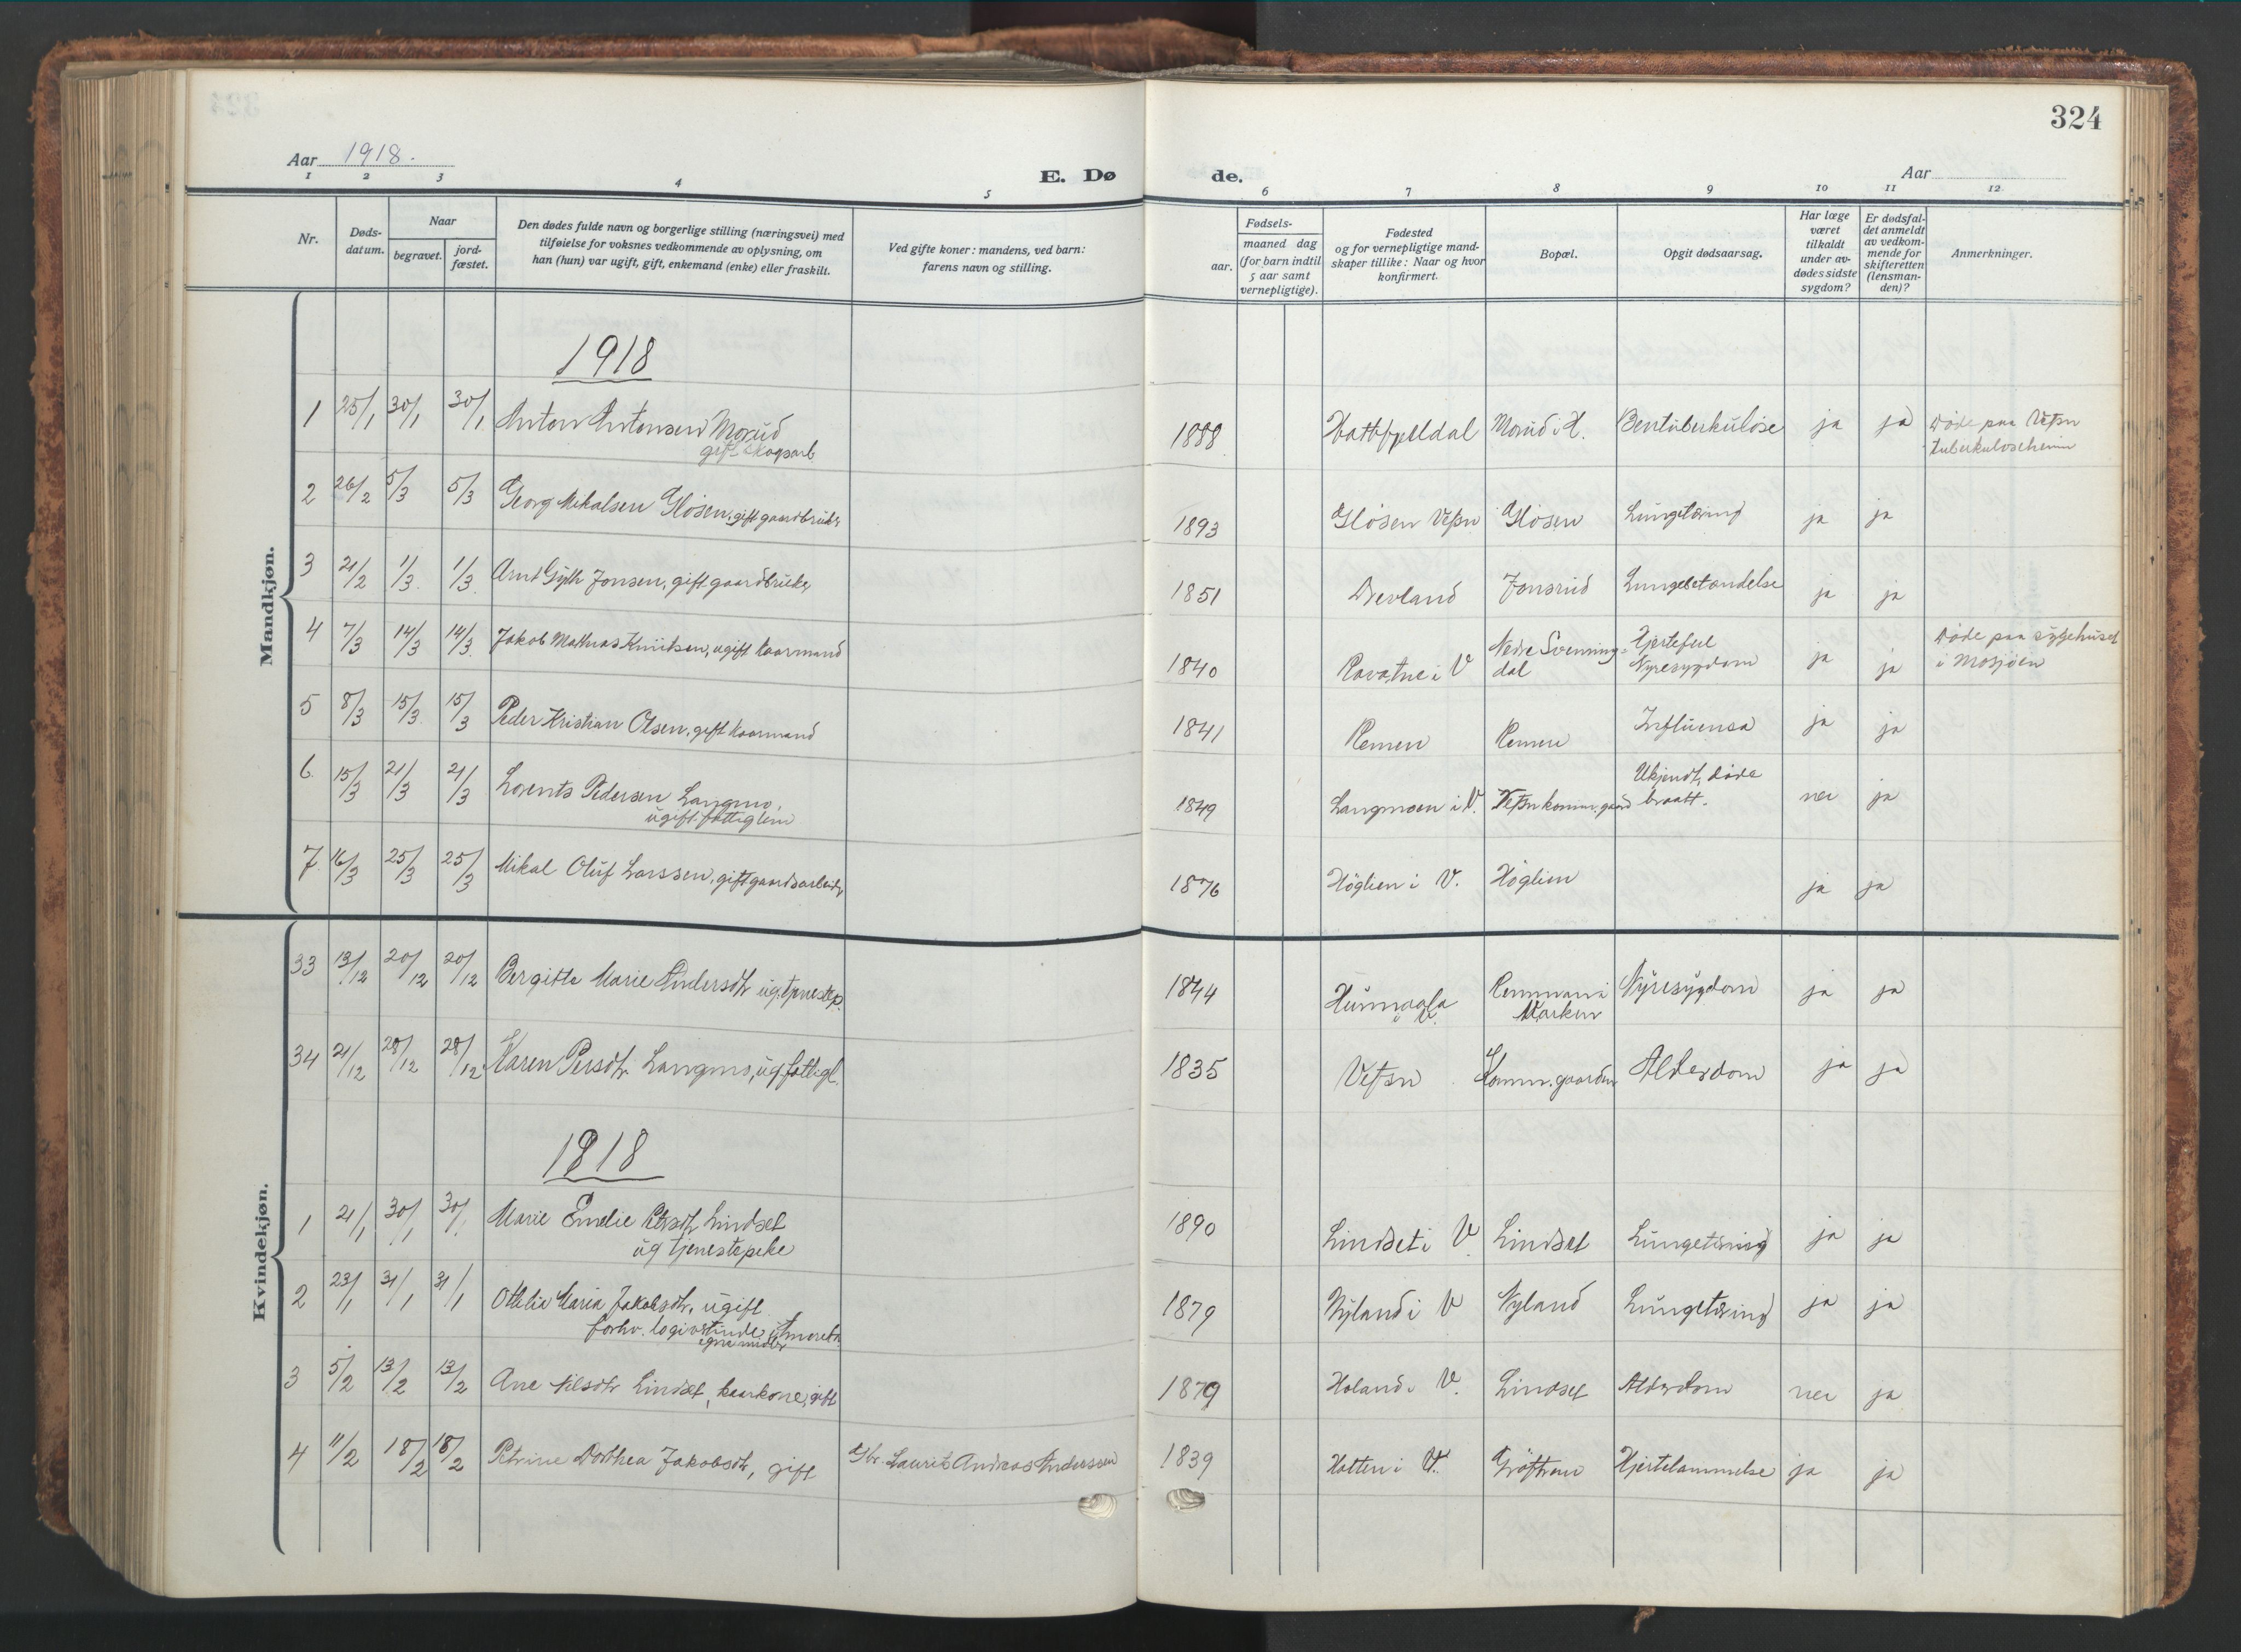 324
Aar 1918.
E. Dø de.
Aar
1 2 3 4 5 6 7 8 9 10 11 12
Nr.
Døds-
datum.
Naar
begravet.
jord-
fæstet.
Den dødes fulde navn og borgerlige stilling (næringsvei) med
tilføielse for voksnes vedkommende av oplysning, om
han (hun) var ugift, gift, enkemand (enke) eller fraskilt.
Ved gifte koner: mandens, ved barn:
farens navn og stilling.
Fødsels-
aar.
maaned dag
(for barn indtil
5 aar samt
vernepligtige).
Fødested
og for vernepligtige mand-
skaper tillike: Naar og hvor
konfirmert.
Bopæl.
Opgit dødsaarsag.
Har læge
været
tilkaldt
under av-
dødes sidste
sygdom?
Er dødsfal-
det anmeldt
av vedkom-
mende for
skifteretten
(lensman-
den)?
Anmerkninger.
Mandkjøn.
1918
1 25/1 30/1 30/1 Anton Antonsen Morud 1888 Hattfjelldal Morud i H. Bentuberkulose ja ja Døde paa Vefsn
gift skogsarb. tuberkuloseheim
2 26/2 5/3 5/3 Georg Mikalsen Glösen, gift gaardbruker 1893 Glösen Vefsn Glösen Lungetæring ja ja
3 21/2 1/3 1/3 Arnt Gjth Jonsen, gift gaardbruker 1851 Drevland Jonsrud Lungebetændelse ja ja
4 7/3 14/3 14/3 Jakob Mathias Knutsen, ugift kaarmand 1840 Ravatne i V Nedre Svenning- Hjertefeil ja ja Döde paa sygehuset
dal Nyresygdom i Mosjöen
5 8/3 15/3 15/3 Peder Kristian Olsen, gift kaarmand 1841 Remen Remen Influensa ja ja
6 15/3 21/3 21/3 Lorents Pedersen Langmo, 1849 Langmoen i V. Vefsn komm. gaard Ukjendt, döde nei ja
ugift. fattiglem braatt.
7 16/3 25/3 25/3 Mikal Oluf Larssen, gift gaardsarbeider 1876 Höglien i V. Höglien ja ja
Kvindekjøn.
33 13/12 20/12 20/12 Bergitte Marie Andersdtr ug. tjenestep. 1844 i V. Nyresygdom ja ja
Marken
34 21/12 28/12 28/12 Karen Persdtr. Langmo, ug. fattigl. 1835 Vefsn Komm. gaarden Alderdom ja ja
1918
1 21/1 30/1 30/1 Marie Emelie Petersdtr Lindset 1890 Lindset i V Lindset Lungetæring ja ja
ug tjenestepike
2 23/1 31/1 31/1 Othilie Maria Jakobsdtr, ugift 1879 Nyland i V Nyland Lungetæring ja ja
forhv. logivertinde
egne midler
3 5/2 13/2 13/2 Ane Nilsdtr Lindset, kaarkone, gift 1879 Holand i V. Lindset Alderdom nei ja
4 11/2 18/2 18/2 Petrine Dorthea Jakobsdtr, gift Gbr. Laurits Andreas Anderssen 1839 Hatten i V. Gröftrem Hjertelammelse ja ja